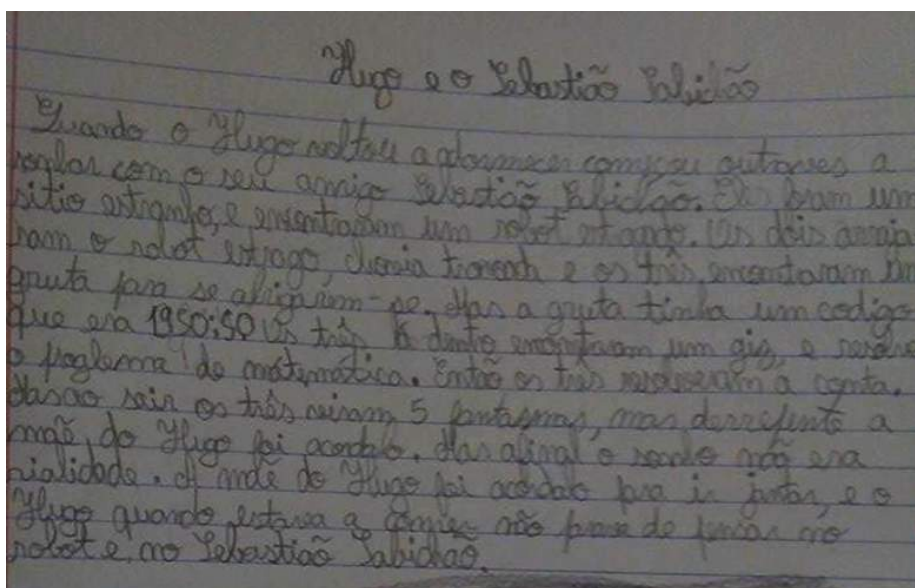 Hugo e o Sebastião Sabidão
Quando o Hugo voltou a adormecer começou outraves a
sonhar com o seu amigo Sebastião Sabidão. Eles foram um
sitio estranho, e encontraram um robot estragado. Os dois arranja
ram o robot estragado, chovia e os três, encontaram um
gruta para se abrigarem-se. Mas a gruta tinha um codigo
que era 1950:50 Os três lá dentro encontraram um giz, e
o poglema de matemática. Então os três resolveram a conta.
Mas ao sair os três viram 5 fantasmas, mas derrepente a
mãe, do Hugo foi acordalo. Mas afinal o sonho não era
rialidade. A mãe do Hugo foi acordalo para ir jantar, e o
Hugo quando estava a comer não de pensar no
robot e, no Sebastião Sabichão.